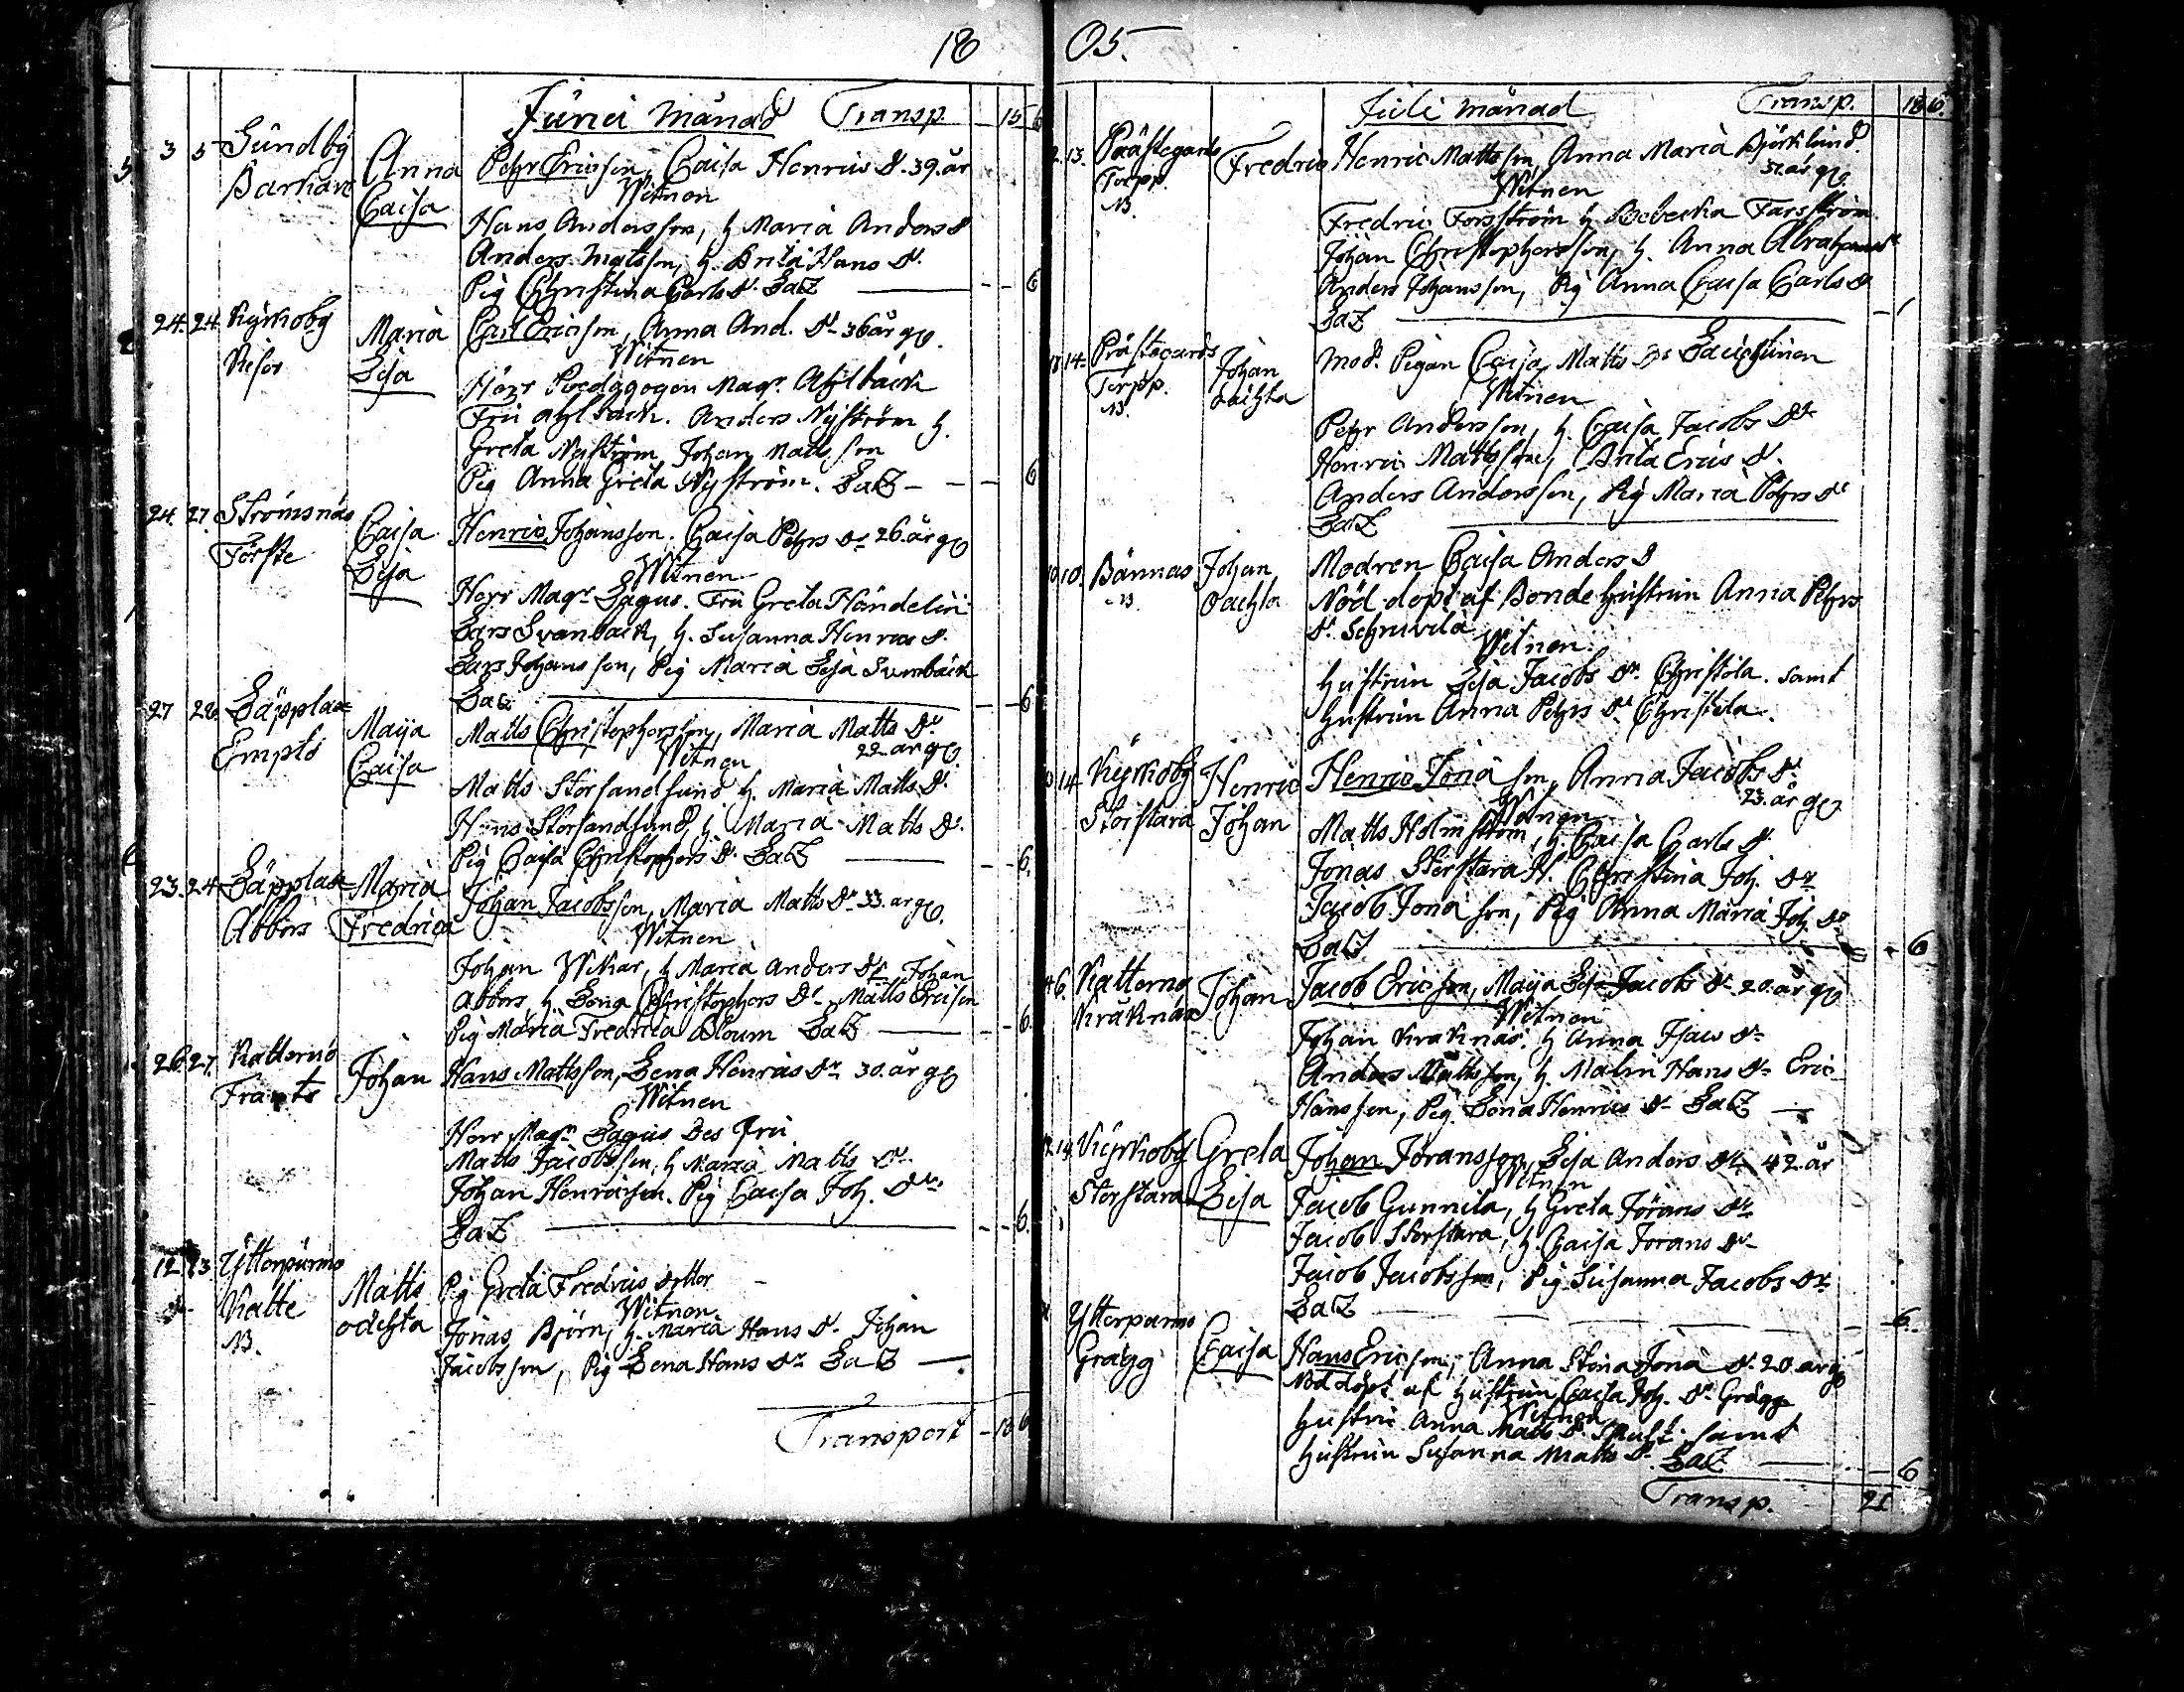 18
Junii månad Transp. 15 6
3 5 Sundby Anna Pehr Ericsson, Caisa Henrics D. 39. år
Barkars Caisa Witnen
Hans Andersson, h Maria Anders D
Anders Matsson, h. Brita Hans Dr.
Pig Christina Carls Dr. LaZ — 6
24. 24. Kyrkoby Maria Carl Ericsson, Anna And. Dr 36 år
Lisa Witnen
Herr Pædagogen Magr. Ahlbäck
Fru Ahlbäck. Anders Nyström h.
Greta Nyström Johan Matts son
Pig Anna Greta Nyström. LaZ — 6
24. 27 Strömsnäs Caisa Henric Johansson. Caisa Pehrs Dr 26. år
Förste Lisa Witnen
Herr Magr Lagus. Fru Greta Händelin
Lars Svanbäck, h. Susanna Henrics Dr.
Lars Johansson, Pig Maria Lisa Svanbäck
LaZ — 6
27 Läpplax Maija Matts Christophersson, Maria Matts Dr
22 år
Empls Caisa Witnen
Matts Storsandsund h. Maria Matts Dr.
Hans Storsandsund, h. Maria Matts Dr.
Pig Caisa Christophers Dr. LaZ — 6.
23. 24. Läpplax Maria Johan Jacobsson, Maria Matts Dr 33. år
Abbors Fredrica Witnen
Johan Wikar, h Maria Anders Dr Johan
Abbors, h. Lena Christophers Dr. Matts Ericson
Pig Maria Fredrica Bloum LaZ — 6.
26. 27. Katternö Johan Hans Mattsson, Lena Henrics Dr 30. år
Frants Witnen
Herr Magr Lagus Des Fru
Matts Jacobsson, h Maria Matts Dr.
Johan Henricson. Pig Caisa Joh. Dr
LaZ — 6.
12 13 Ytterpurmo Matts Pig Greta Fredrics dotter
Katte oächta Witnen
Jonas Björn, h. Maria Hans Dr. Johan
Jacobsson, Pig Lena Hans Dr LaZ —
Transport
05.
Juli månad Transp. 18 6.
13. Präästegards Fredric Henric Mattsson, Anna Maria Björklund.
Torpp. 31. år
Witnen
Fredric Forsström h Rebecka Forsström
Johan Christophersson, h. Anna Abrahams Dr
Anders Johansson, Pig Anna Caisa Carls D
LaZ —
14. Prästegards Johan Mod. Pigan Caisa Matts Dr
Torpp. oächta Witnen
Pehr Andersson, h. Caisa Jacobs Dr
Henric Mattsson, Brita Erics Dr.
Anders Andersson, Pig Maria Pehrs Dr
LaZ —
10. Bännas Johan Modren Caisa Anders D
oächta Nöd döpt af Bonde hustrun Anna Pehrs
Dr. Schruvila
Witnen.
hustrun Lisa Jacobs Dr. Christila. samt
hustrun Anna Pehrs Dr Christila.
14. Kyrkoby Henric Henric Jona son, Anna Jacobs Dr
23. år
Storstara Johan Witnen
Matts Holmström, h. Caisa Carls Dr.
Jonas Storstara H. Christina Joh. Dr
Jacob Jona son, Pig Anna Maria Joh. Dr
LaZ — 6
6. Katternö Johan Jacob Ericson, Maija Lisa Jacobs Dr 20. år
Kråknäs Witnen
Johan Kråknäs. h Anna Isacs Dr
Anders Mattsson, h. Malin Hans Dr Eric
Hansson, Pig Lena Henrics Dr LaZ —
14. Kyrkoby Greta Johan Jöransson, Lisa Anders Dr. 42. år
Storstara Lisa Witnen
Jacob Gunnila, h Greta Jörans Dr
Jacob Storstara, h. Caisa Jörans Dr
Jacob Jacobsson, Pig Susanna Jacobs Dr
LaZ — 6.
Ytterpurmo
Grägg Caisa Hans Ericson, Anna Stina Jona Dr. 20. år
Nöddöpt af hustrun Caisa Joh. Dr. Grägg
Witnen
hustru Anna Matts Dr. samt
hustrun Susanna Matts Dr. LaZ — 6
Transp. 21